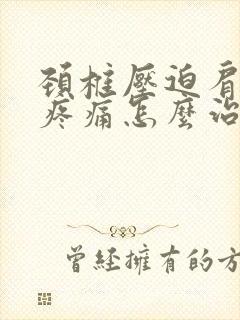 頚椎壓迫肩
疼痛怎麼治
曾經擁有的方